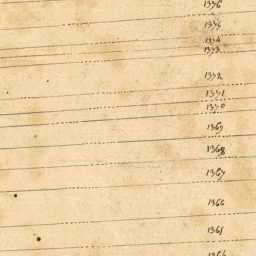 1376
1375
1374
1373
1372
1371
1370
1369
1368
1367
1366
1365
1364